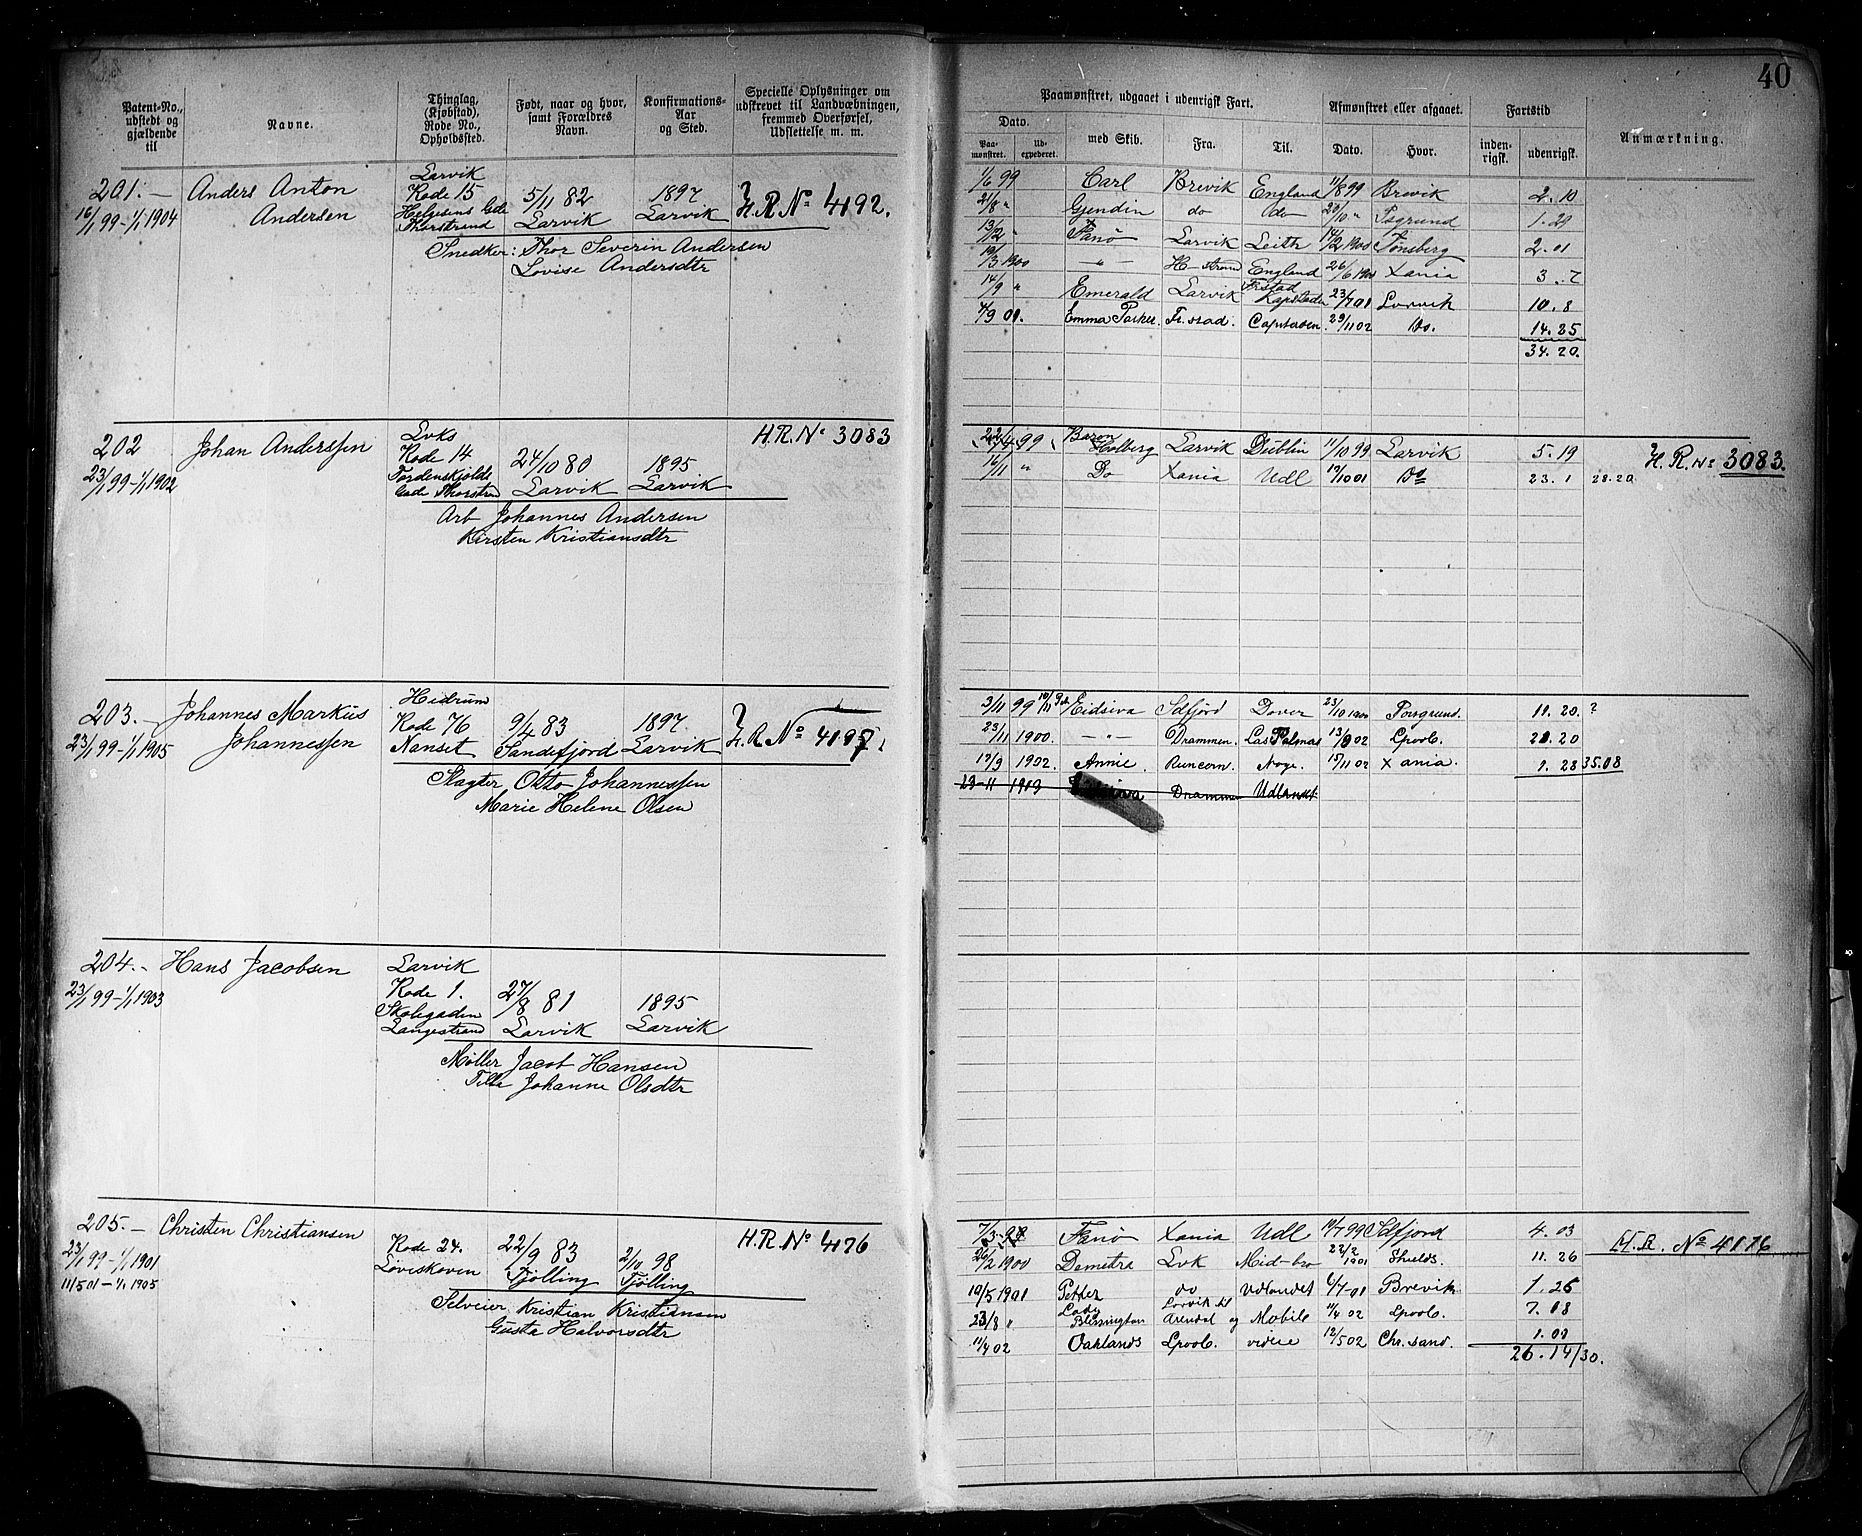 40
Patent-No., udstedt og gjældende til
Navne.
Thinglag, (Kjøbstad), Rode No., Opholdssted.
Født, naar og hvor, samt Forældres Navn.
Konfirmations-Aar og Sted.
Specielle Oplysninger om udskrevet til Landværningen, fremmed Overførsel, Udslettelse m. m.
Paamønstret, udgaaet i udenrigsk Fart.
Afmønstret eller afgaaet.
Fartstid
Anmærkning.
Dato.
Paa-mønstret.
Ud-expederet.
med Skib.
Fra.
Til.
Dato.
Hvor.
inden-rigsk.
udenrigsk.
201. —
16/1 99 - 1/1 1904
Anders Anton
Andersen
Larvik
Rode 15
Helgesens Gde
Thorstrand
5/11 82
Larvik
1897
Larvik
H.R. No 4192.
Snedker: Thor Severin Andersen
Lovise Andersdtr
1/6 99 Carl Brevik England 11/8 99 Brevik 2.10
21/8 " Gjendin do do 20/10 " Psgrund 1.29
13/12 " Fanø Larvik Leith 14/2 1900 Tønsberg 2.01
19/3 1900 — " — H-strand England 26/6 1900 Xania 3.7
14/9 " Emerald Larvik Frstad Kapstaden 23/7 01 Larvik 10.8
4/9 01. Emma Parker. Fr.stad. Capstaden. 29/11 02 Do. 14.25
34.20.
202
23/1 99 - 1/1 1902
Johan Anderssen
Lvks
Rode 14
Tordenskjolds
Gade Thorstrn
24/10 80
Larvik
1895
Larvik
H.R. No 3083
Arb Johannes Andersen
Kirsten Kristiansdtr
22/4 99 Baron Holberg Larvik Dublin 11/10 99 Larvik 5.19 H.R. No 3083.
16/11 " Do Xania Udl 19/10 01 Do 23.1 28.20
203. —
23/1 99 - 1/1 1905
Johannes Markus
Johannessen
Hedrum
Rode 76
Nanset
9/4 83
Sandefjord
1897
Larvik
H.R. No 4197
Slagter Otto Johannessen
Marie Helene Olsen
3/11 99 Eidsiva Sdfjord Dover 23/10 1900 Porsgrund. 11.20. ?
23/11 1900. — " — Drammen. Las Palmas 13/8 02 Lpool. 21.20
19/9 1902. Annie. Runcorn. Noge. 17/11 02 Xania. 1.28 35.08
23-11 1903 Drammen Udlandet
204. -
23/1 99 - 1/1 1903
Hans Jacobsen
Larvik
Rode 1.
Skolegaden
Langestrand
27/8 81
Larvik
1895
Larvik
Møller Jacob Hansen
Johanne Olsdtr
205. —
23/1 99 - 1/1 1901
11/5 01 - 1/1 1905
Christen Christiansen
Rode 24.
Løviskoven
22/9 83
Tjølling
2/10 98
Tjølling
H.R. No 4176
Selveier Kristian Kristiansen
Gusta Halvorsdtr
7/3 99 Fanø Xania Udl 10/7 99 Sdfjord 4.03 H.R. No 4176
26/2 1900 Demetra Lvk Mid-bro 22/2 1901 Shields. 11.26
10/5 1901 Petter do Udlandet 6/7-01 Brevik 1.26
23/8 " Lady Blessington Larvik til Arendal og Mobile 11/4 02 Lpool. 7.18
11/4 02 Oaklands Lpool. videre 12/5 02 Chr.sand. 1.00
26.14/30.